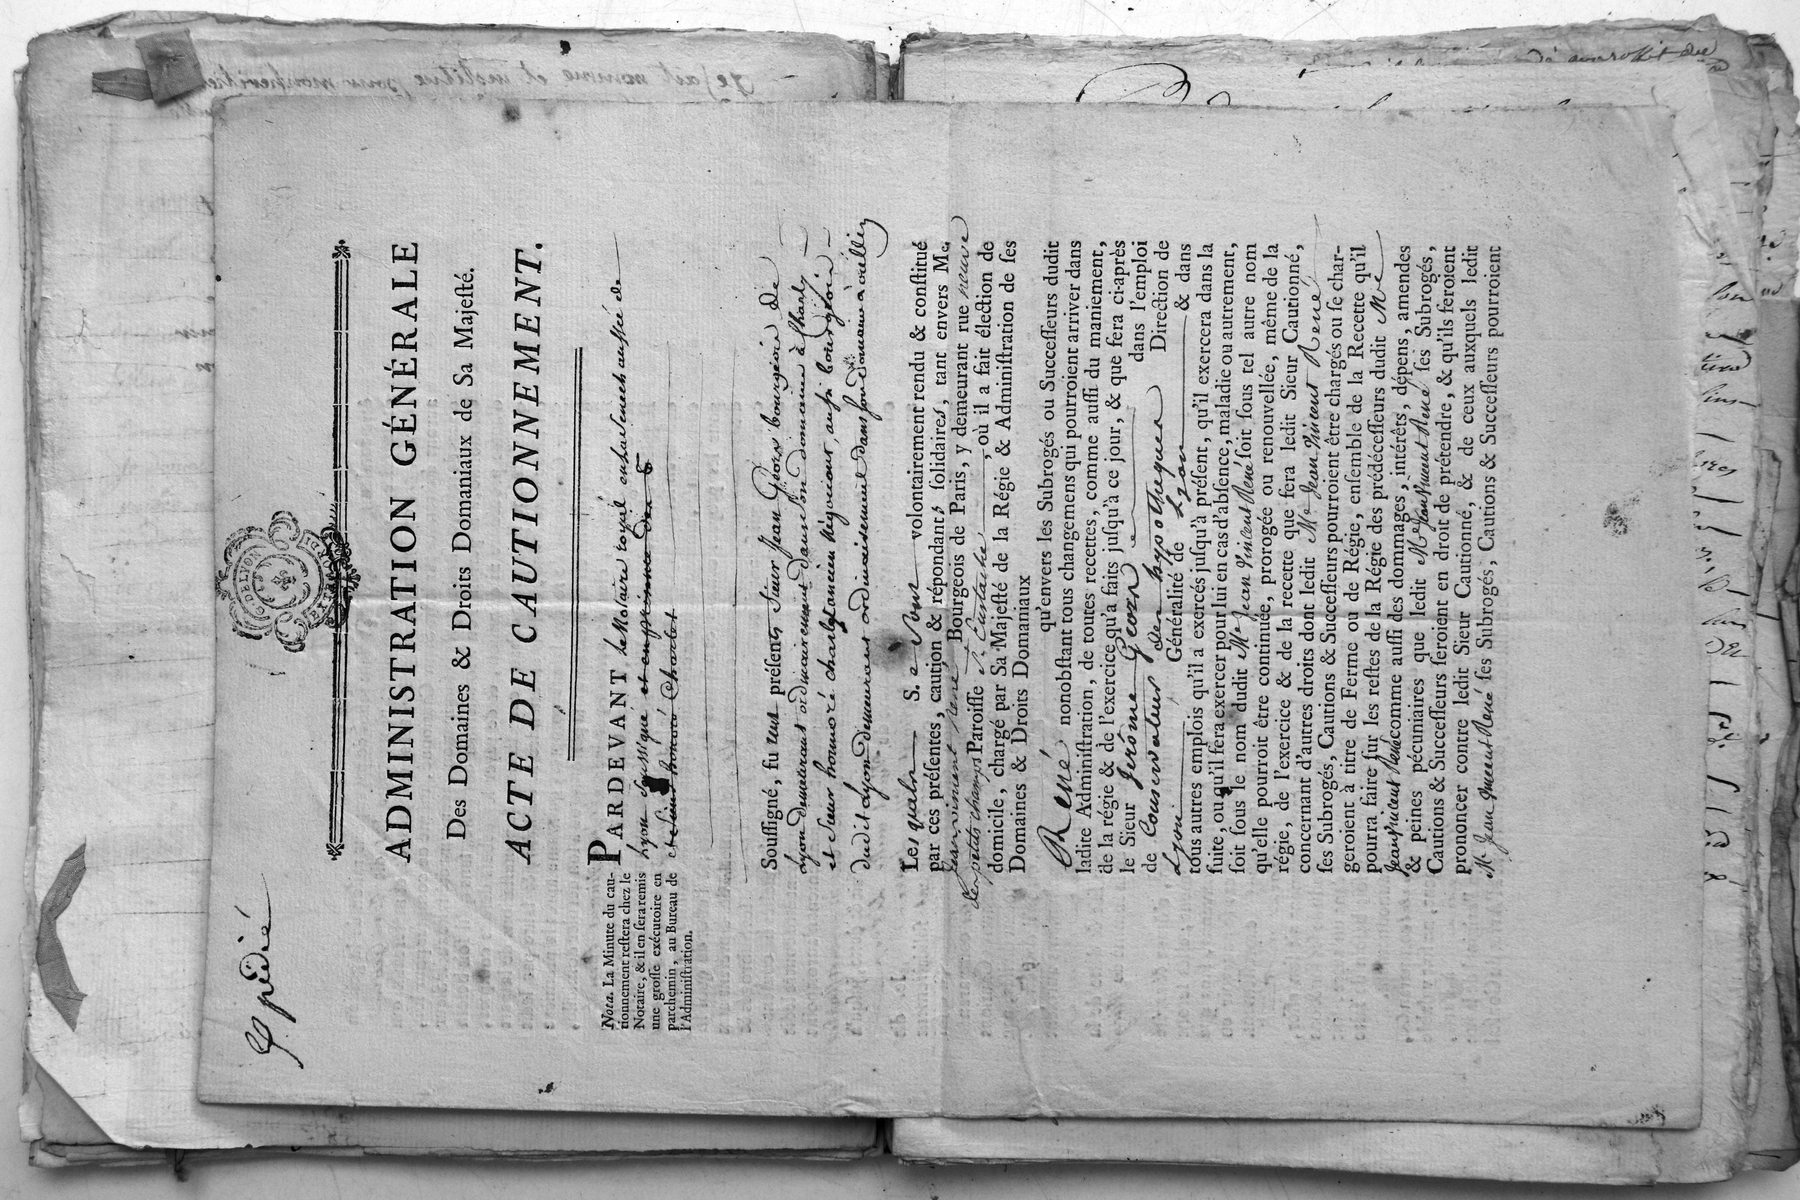 Expédié
G. DE LYON
EXTRAORD.
ADMINISTRATION GÉNÉRALE
Des Domaines & Droits Domaniaux de Sa Majesté.
ACTE DE CAUTIONNEMENT.
Nota. La Minute du cau-
tionnement restera chez le
Notaire, & il en sera remis
une grosse exécutoire en
parchemin, au Bureau de
l'Administration.
PARDEVANT le Notaire royal en la senechaussée de
Lyon soussigné et en présence des
et sieur honoré Charlet
Soussigné, fut présents Sieur Jean Geoin bourgeois de
Lyon demeurant ordinairement dans son domaine à Charly
et Sieur honoré charlet ancien Négociant, aussi bourgeois
dudit Lyon demeurant ordinairement dans son domaine à oullin
Lesquels S.rs volontairement rendu & constitué
par ces présentes, caution & répondants solidaires, tant envers Me.
Jean vincent René Bourgeois de Paris, y demeurant rue neuve
des petits champs Paroisse St. Eustache, où il a fait élection de
domicile, chargé par Sa Majesté de la Régie & Administration de ses
Domaines & Droits Domaniaux
qu'envers les Subrogés ou Successeurs dudit
René nonobstant tous changemens qui pourroient arriver dans
ladite Administration, de toutes recettes, comme aussi du maniement,
de la régie & de l'exercice qu'a faits jusqu'à ce jour, & que fera ci-après
le Sieur Jerôme Geoin dans l'emploi
de Conservateur des hypotheques Direction de
Lyon Généralité de Lyon & dans
tous autres emplois qu'il a exercés jusqu'à présent, qu'il exercera dans la
suite, ou qu'il fera exercer pour lui en cas d'absence, maladie ou autrement,
soit sous le nom dudit Me Jean Vincent René soit sous tel autre nom
qu'elle pourroit être continuée, prorogée ou renouvellée, même de la
régie, de l'exercice & de la recette que fera ledit Sieur Cautionné,
concernant d'autres droits dont ledit Me Jean Vincent René
ses Subrogés, Cautions & Successeurs pourroient être chargés ou se char-
geroient à titre de Ferme ou de Régie, ensemble de la Recette qu'il
pourra faire sur les restes de la Régie des prédécesseurs dudit Me
Jean vincent René comme aussi des dommages, intérêts, dépens, amendes
& peines pécuniaires que ledit Me Jean vincent René ses Subrogés,
Cautions & Successeurs seroient en droit de prétendre, & qu'ils feroient
prononcer contre ledit Sieur Cautionné, & de ceux auxquels ledit
Me Jean vincent René ses Subrogés, Cautions & Successeurs pourroient